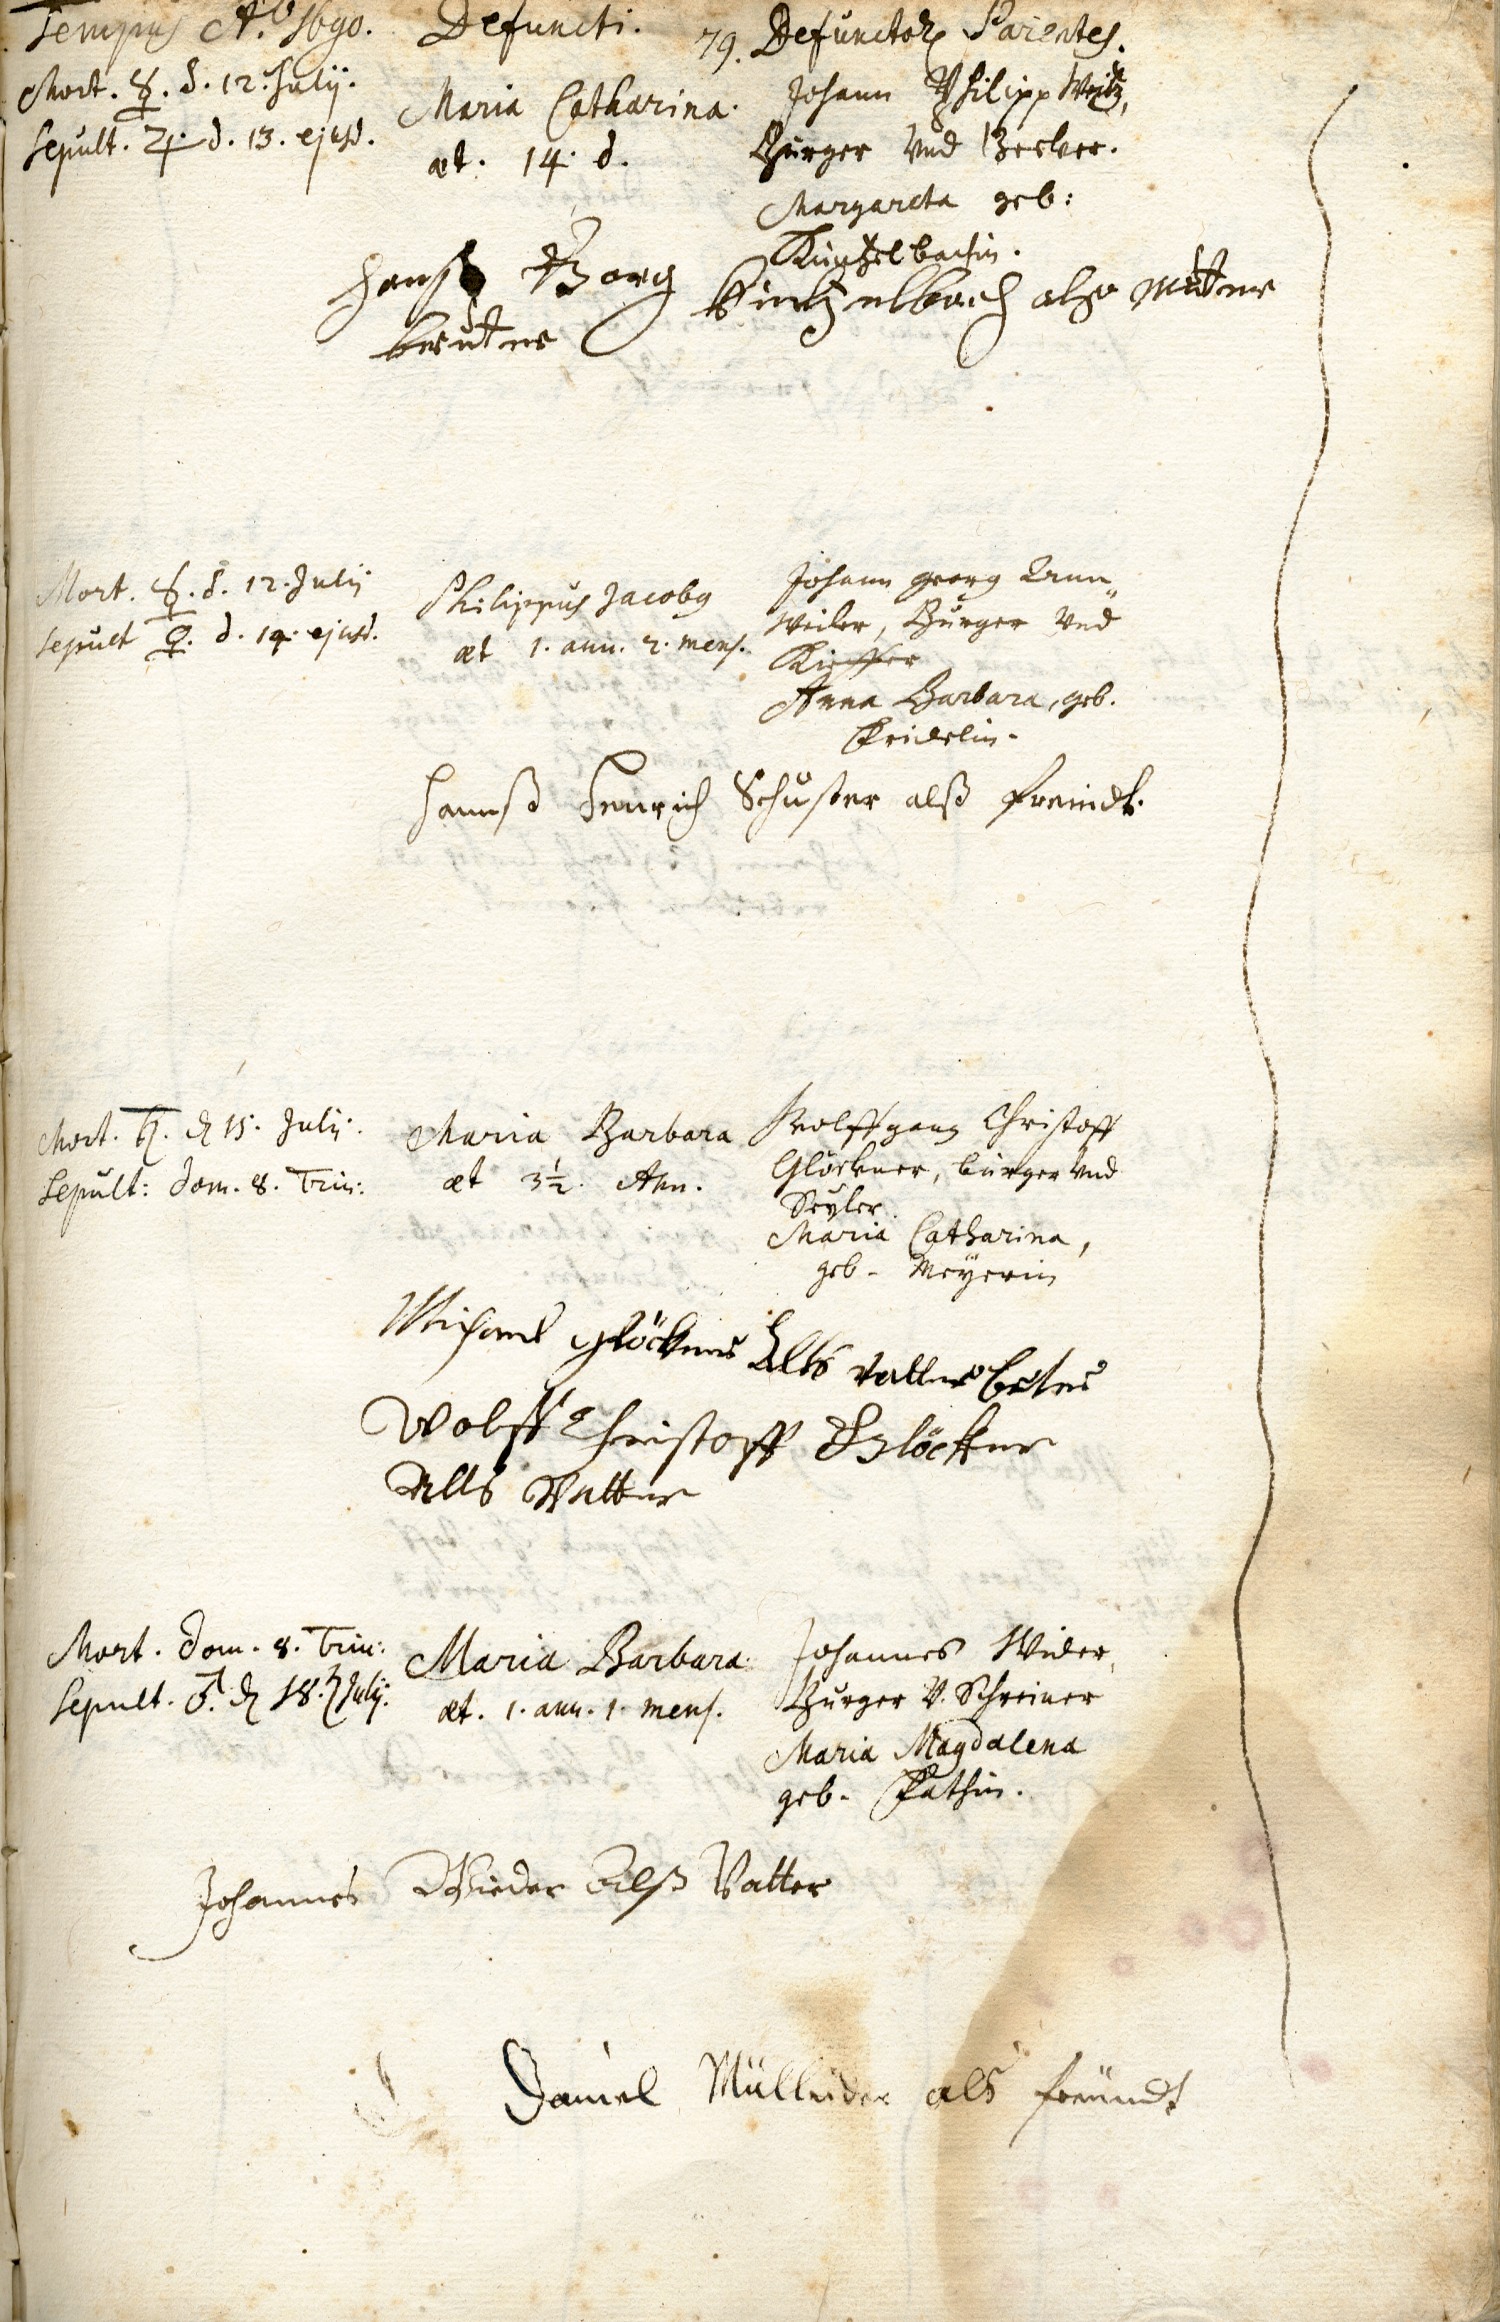 Tempus Aō. 1690. Defuncti. 79. Defunctorꝫ Parentes.
Mort. ☿. d. 12. Julij.
Sepult. ♃. d. 13. ejusd.
Maria Catharina.
æt. 14. d.
Johann Philipp
Burger Vnd Becker.
Margareta geb:
Küntzelbachin.
Hanß Görg Küntzelbach alß Mutter
bruter
Mort. ☿. d. 12. Julij
Sepult ♀. d. 14. ejusd.
Philippus Jacobus
æt 1. ann. 2. mens.
Johann Georg
Weiler, Burger Vnd
Kieffer
Anna Barbara, geb.
Fridelin.
Hannß Henrich Schuster alß freindt.
Mort. ♄. d. 15. Julij.
Sepult: Dom. 8. Trin:
Maria Barbara
æt 3½. Ann.
Wolffgang Christoff
Glöckner, burger Vnd
Seyler.
Maria Catharina,
geb. Meÿerin
Michael glöckner Alls vatter bruter
Wolff Christoff Glöckner
Alls Vatter
Mort. Dom. 8. Trin:
Sepult. ♂. d. 18. Julij.
Maria Barbara.
æt. 1. ann. 1. mens.
Johannes Wider,
Burger V. Schreiner
Maria Magdalena
geb. Fathin.
Johannes Wieder Alß Vatter
Daniel als freündt